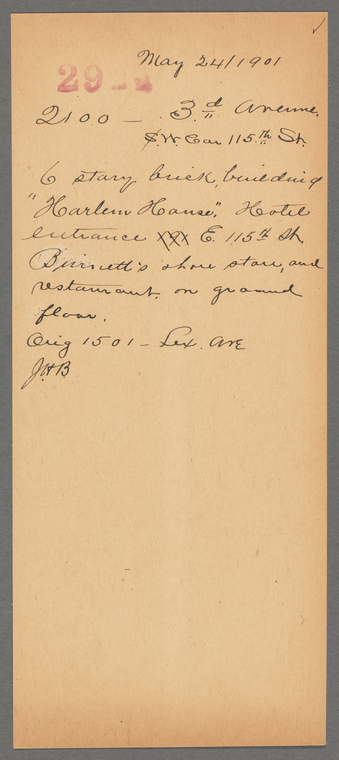 May 24/1901
29
2100 - 3rd Avenue.
S.W. Cor 115th St.
6 story brick, building
"Harlem House", Hotel
entrance XXX E. 115th St,
Burnett's shoe store, and
restaurant. on ground
floor.
Orig 1501 - Lex. Ave
J.H.B